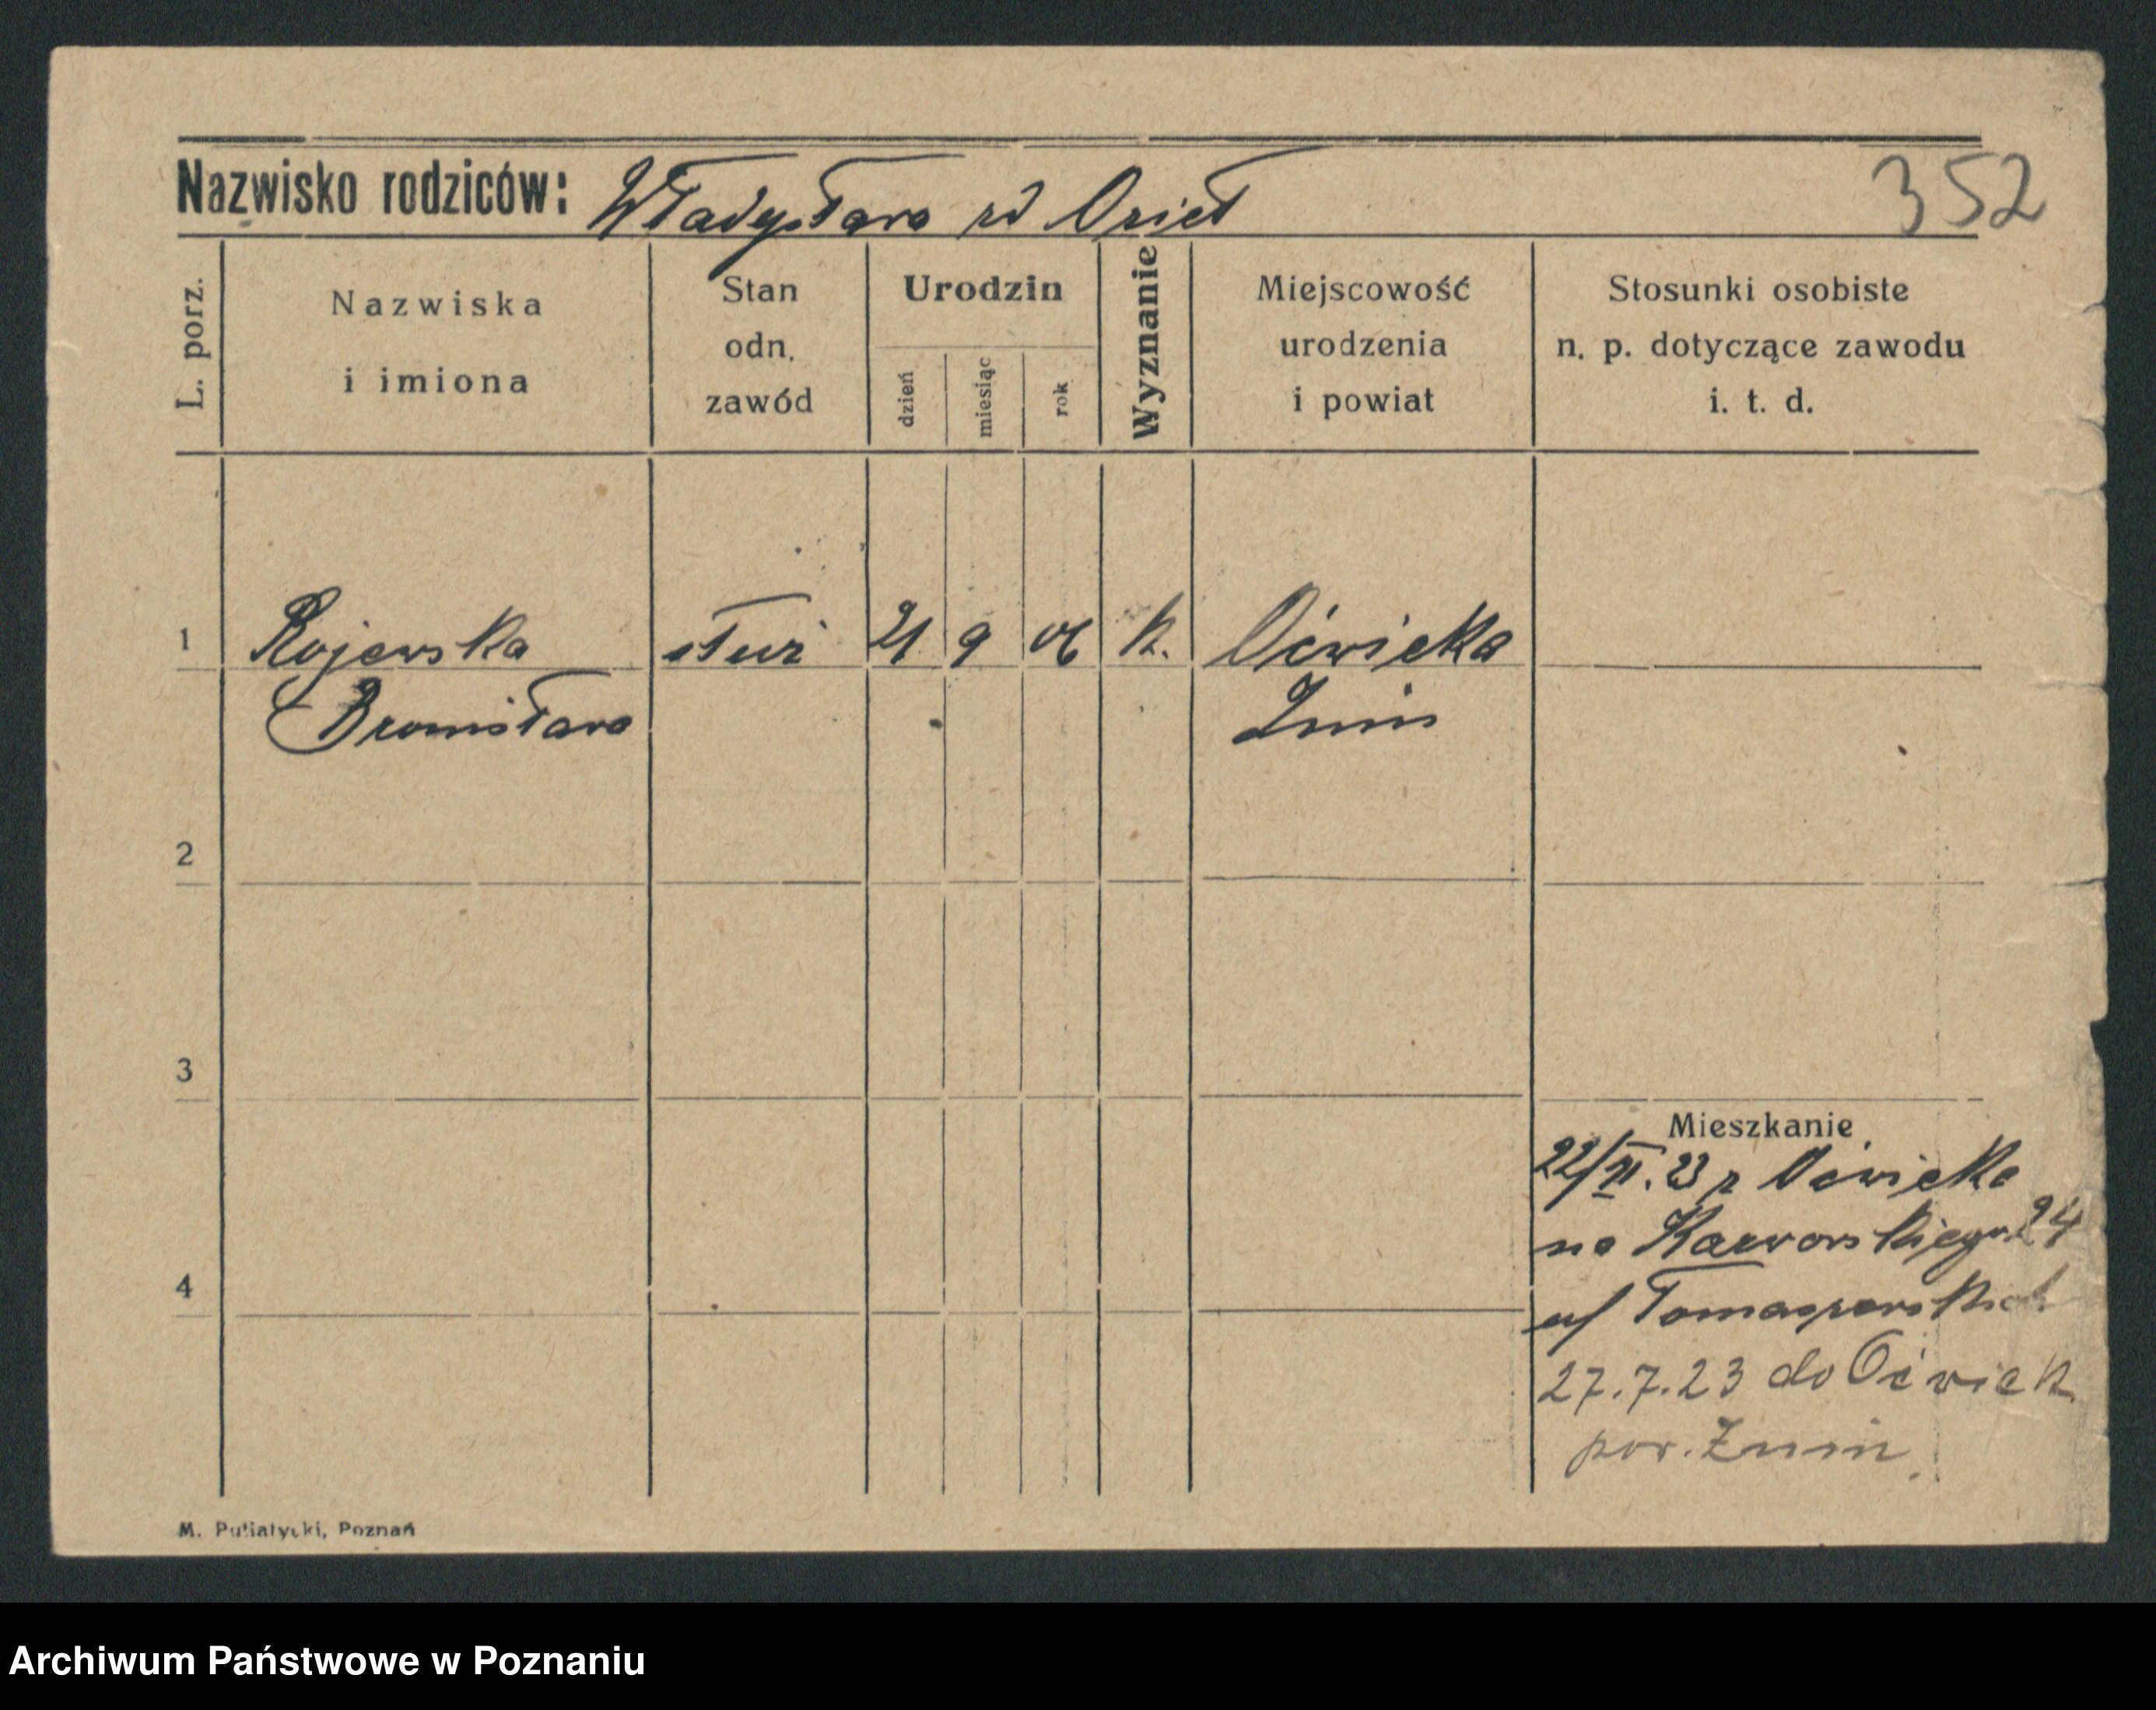 Nazwisko rodziców: Władysława rd Ozieł
352
L. porz.
Nazwiska
i imiona
Stan
odn.
zawód
Urodzin
dzień
miesiąc
rok
Wyznanie
Miejscowość
urodzenia
i powiat
Stosunki osobiste
n. p. dotyczące zawodu
i. t. d.
1 Rojewska służ 21 9 06 k. Oćwieka
Bronisława Żnin
2
3
4
Mieszkanie
22/VI.23 z Oćwieka
na Karwowskiego 24
u/ Tomaszewskich
27.7.23 do Oćwiek
pow. Żnin
M. Putiatycki, Poznań
Archiwum Państwowe w Poznaniu